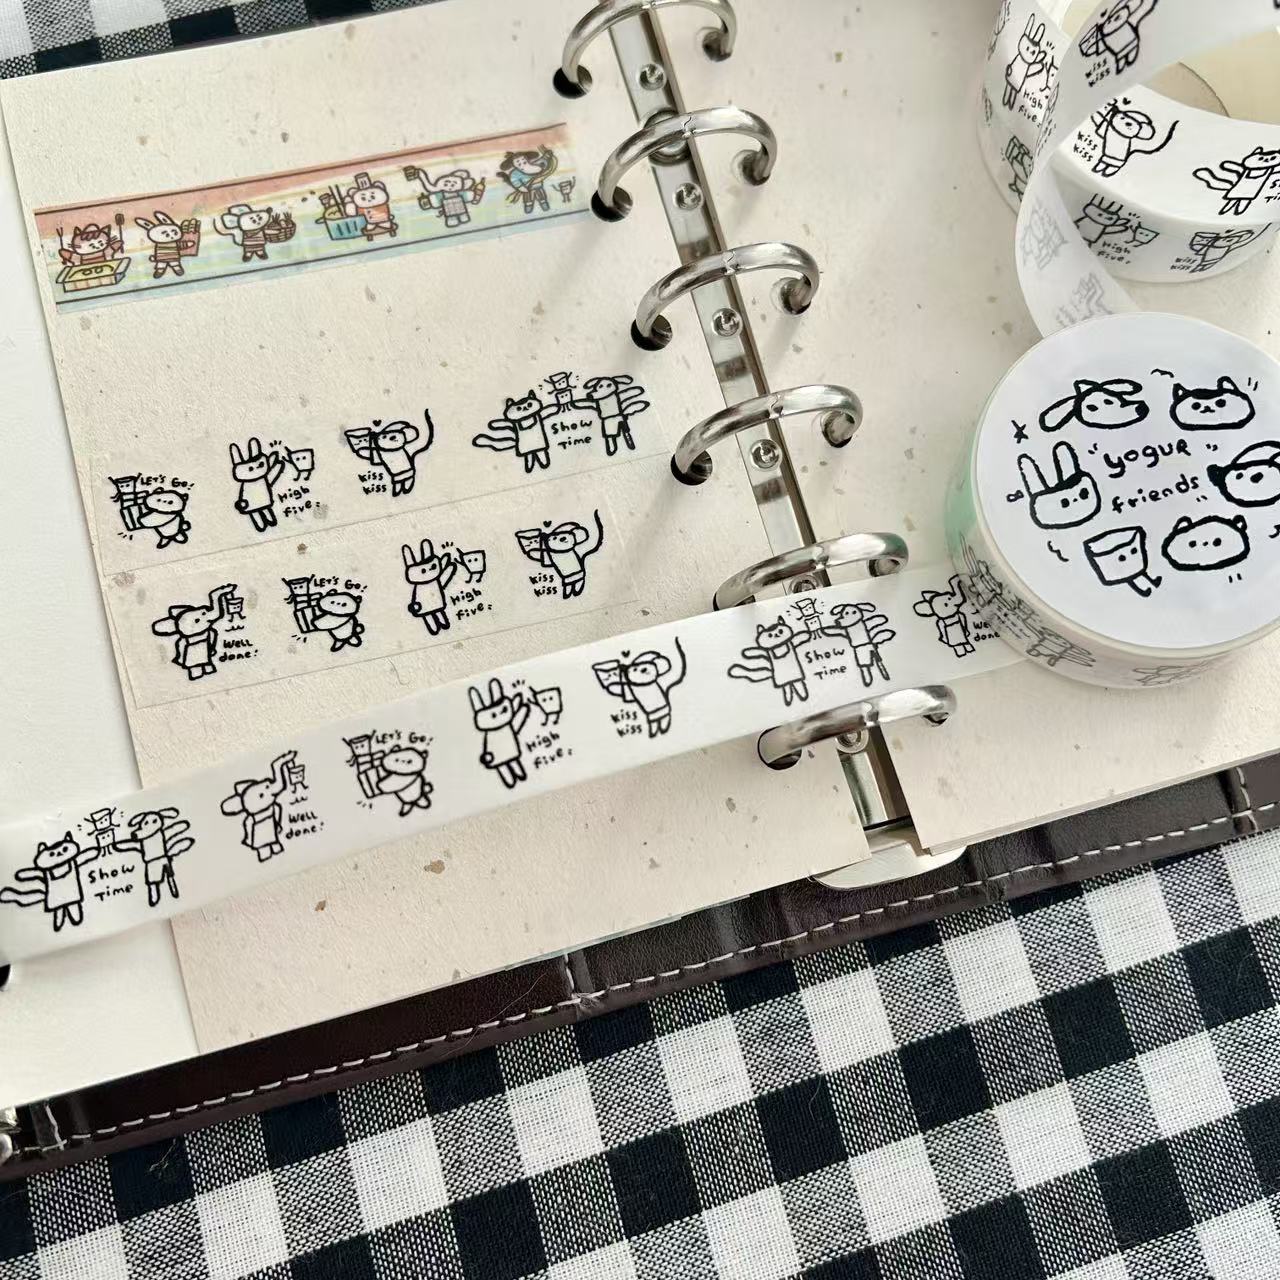 LET'S GO!
High
five:
kiss
kiss
Show
Time
Well
done!
LET'S GO!
High
five:
kiss
kiss
Show
Time
Well
done!
LET'S GO!
High
five:
kiss
kiss
Show
Time
Well
done
"yogur"
friends
High
five
kiss
kiss
kiss
kiss
High
five:
kiss
kiss